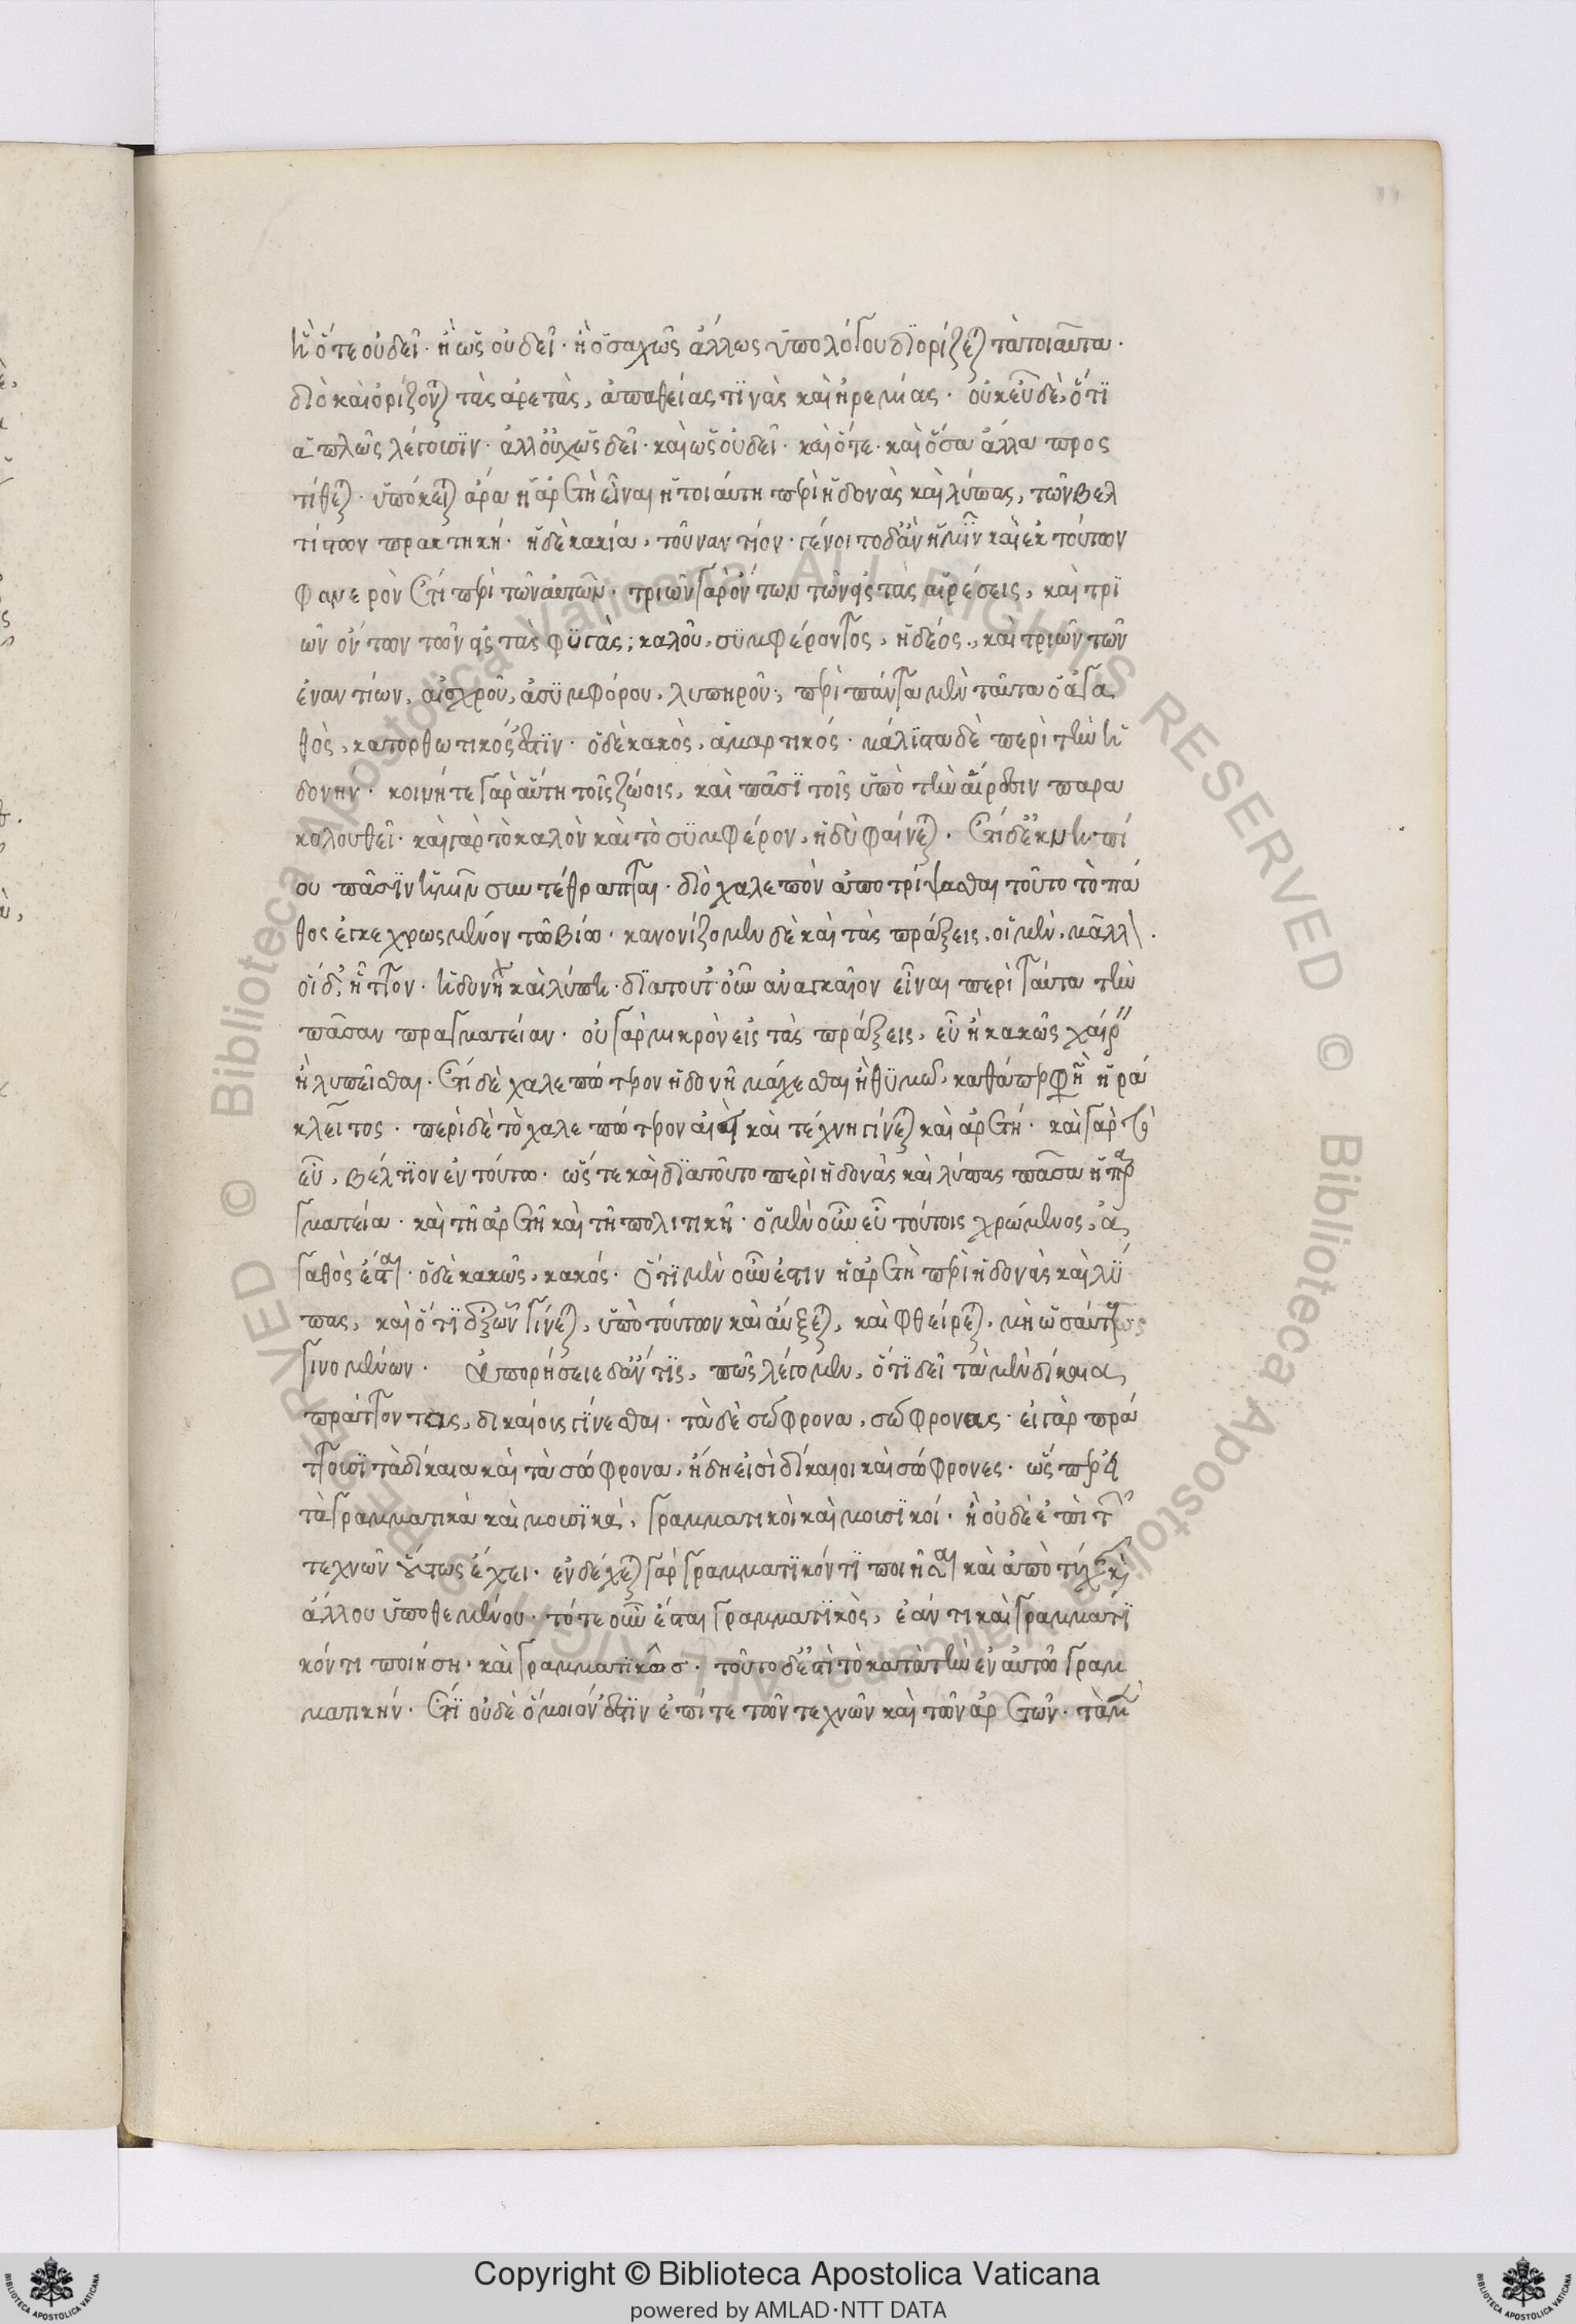 ἢ ὅτε οὐ δεῖ· ἢ ὡς οὐ δεῖ· ἢ ὁσαχῶς ἄλλως ὑπο λόγου διορίζεται τὰ τοιαῦτα·
διὸ καὶ ὁρίζονται τὰς ἀρετὰς, ἀπαθείας τινὰς καὶ ἠρεμίας· οὐκ εὖ δὲ, ὅτι
ἁπλῶς λέγουσιν· ἀλλ οὐχ ὡς δεῖ· καὶ ὡς οὐ δεῖ· καὶ ὅτε· καὶ ὅσα ἄλλα προς
τίθεται· ὑπόκειται ἄρα ἡ ἀρετὴ εἶναι ἡ τοιαύτη περὶ ἡδονὰς καὶ λύπας, τῶν βελ
τίστων πρακτικὴ· ἡ δὲ κακία, τοὐναντίον· γένοιτο δ ἂν ἡμῖν καὶ ἐκ τούτων
φανερὸν ἔτι περὶ τῶν αὐτῶν· τριῶν γὰρ ὄντων τῶν εἰς τὰς αἱρέσεις, καὶ τρι
ῶν ὄντων τῶν εἰς τὰς φυγὰς; καλοῦ, συμφέροντος, ἡδέος, καὶ τριῶν τῶν
ἐναντίων, αἰσχροῦ, ἀσυμφόρου, λυπηροῦ, περὶ πάντα μὲν ταῦτα ὁ ἀγα
θὸς, κατορθωτικός ἐστιν· ὁ δὲ κακὸς, ἁμαρτικός· μάλιστα δὲ περὶ τὴν ἡ
δονήν· κοινή τε γὰρ αὕτη τοῖς ζώοις, καὶ πᾶσι τοῖς ὑπὸ τὴν αἵρεσιν παρα
κολουθεῖ· καὶ γὰρ τὸ καλὸν καὶ τὸ συμφέρον, ἡδὺ φαίνεται· ἔτι δ ἐκ νηπί
ου πᾶσιν ἡμῖν συντέθραπται· διὸ χαλεπὸν ἀποτρίψασθαι τοῦτο τὸ πά
θος ἐγκεχρωσμένον τῶ βίω· κανονίζομεν δὲ καὶ τὰς πράξεις, οἱ μὲν, μᾶλλον·
οἱ δ, ἧττον· ἡδονῆ καὶ λύπη· διὰ τοῦτ οὖν ἀναγκαῖον εἶναι περὶ ταῦτα τὴν
πᾶσαν πραγματείαν· οὐ γὰρ μικρὸν εἰς τὰς πράξεις, εὖ ἢ κακῶς χαίρειν
ἢ λυπεῖσθαι· ἔτι δὲ χαλεπώτερον ἡδονῆ μάχεσθαι ἢ θυμῶ, καθάπερ φησὶν ἡρά
κλειτος· περὶ δὲ τὸ χαλεπώτερον αἰεὶ καὶ τέχνη γίνεται καὶ ἀρετή· καὶ γὰρ τὸ
εὖ, βέλτιον ἐν τούτω· ὥστε καὶ διὰ τοῦτο περὶ ἡδονὰς καὶ λύπας πᾶσα ἡ πρα
γματεία· καὶ τῆ ἀρετῆ καὶ τῆ πολιτικῆ· ὁ μὲν οὖν εὖ τούτοις χρώμενος, ἀ
γαθὸς ἔσται· ὁ δὲ κακῶς, κακός· ὅτι μὲν οὖν ἐστιν ἡ ἀρετὴ περὶ ἡδονὰς καὶ λύ
πας, καὶ ὅτι ἐξ ὧν γίνεται, ὑπὸ τούτων καὶ αὔξεται, καὶ φθείρεται, μὴ ὡσαύτως
γινομένων· Ἀπορήσειε δ ἄν τις, πῶς λέγομεν, ὅτι δεῖ τὰ μὲν δίκαια
πράττοντας, δικαίους γίνεσθαι· τὰ δὲ σώφρονα, σώφρονας· εἰ γὰρ πρά
ττουσι τὰ δίκαια καὶ τὰ σώφρονα, ἤδη εἰσὶ δίκαιοι καὶ σώφρονες· ὥσπερ εἰ
τὰ γραμματικὰ καὶ μουσικὰ, γραμματικοὶ καὶ μουσικοί· ἢ οὐδὲ ἐπὶ τῶν
τεχνῶν οὕτως ἔχει· ἐνδέχεται γὰρ γραμματικόν τι ποιῆσαι καὶ ἀπὸ τύχης καὶ
ἄλλου ὑποθεμένου· τότε οὖν ἔσται γραμματικὸς, ἐάν τι καὶ γραμματι
κόν τι ποιήση· καὶ γραμματικῶς· τοῦτο δ ἐστὶ τὸ κατὰ τὴν ἐν αὑτῶ γραμ
ματικήν· ἔτι οὐδὲ ὅμοιόν ἐστιν ἐπί τε τῶν τεχνῶν καὶ τῶν ἀρετῶν· τὰ μὲν
Copyright © Biblioteca Apostolica Vaticana
powered by AMLAD·NTT DATA